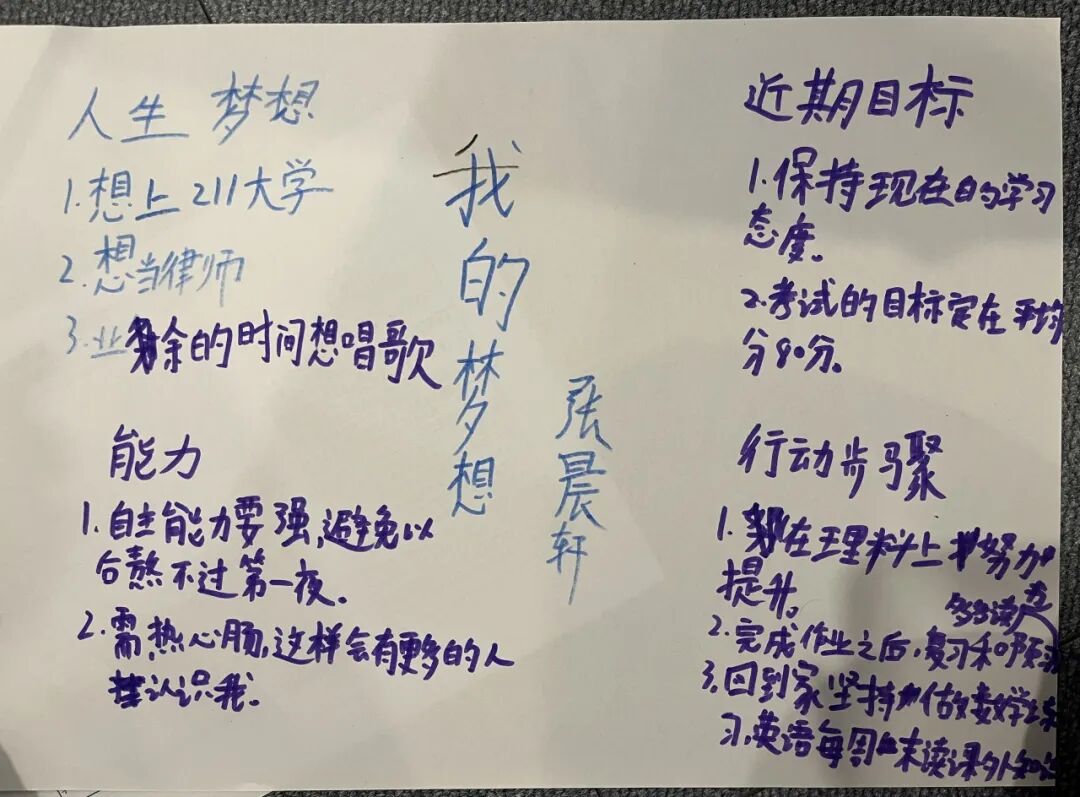 我的梦想
张晨轩
人生 梦想
1.想上211大学
2.想当律师
3.业余的时间想唱歌
能力
1.自主能力要强,避免以
后熬不过第一夜。
2.需热心肠,这样会有更多的人
认识我。
近期目标
1.保持现在的学习
态度。
2.考试的目标定在平均
分80分。
行动步骤
1.在理科上努力
提升。
2.完成作业之后,复习和预习
多读
3.回到家坚持做数学练
习,英语每周末读课外知识